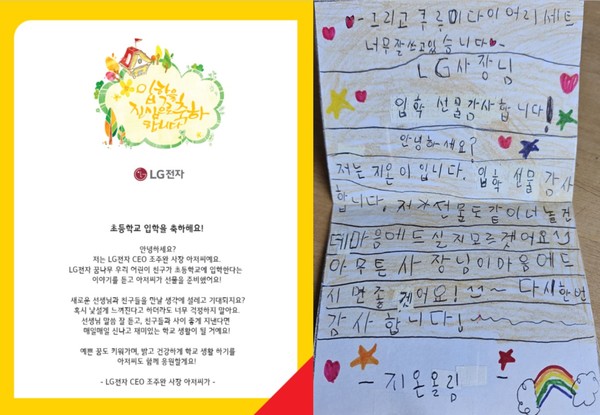 입학을
진심으로 축하
합니다
LG전자
초등학교 입학을 축하해요!
안녕하세요?
저는 LG전자 CEO 조주완 사장 아저씨예요.
LG전자 꿈나무 우리 어린이 친구가 초등학교에 입학한다는
이야기를 듣고 아저씨가 선물을 준비했어요!
새로운 선생님과 친구들을 만날 생각에 설레고 기대되지요?
혹시 낯설게 느껴진다고 하더라도 너무 걱정하지 말아요.
선생님 말씀 잘 듣고, 친구들과 사이 좋게 지낸다면
매일매일 신나고 재미있는 학교 생활이 될 거예요!
예쁜 꿈도 키워가며, 밝고 건강하게 학교 생활 하기를
아저씨도 함께 응원할게요!
- LG전자 CEO 조주완 사장 아저씨가 -
- 그리고 쿠루미 다이어리 세트
너무 잘 쓰고 있습니다
LG 사장님
입학 선물 감사 합니다!
안녕하세요?
저는 지온이 입니다. 입학 선물 감사
합니다. 저가 선물도 같이 너 놀건
데 마음에 드실 지 모르겟어요
아무튼 사장님이 마음에 드
시면 좋겟어요! ~ 다시 한번
감사 합니다!
- 지온 올림 -